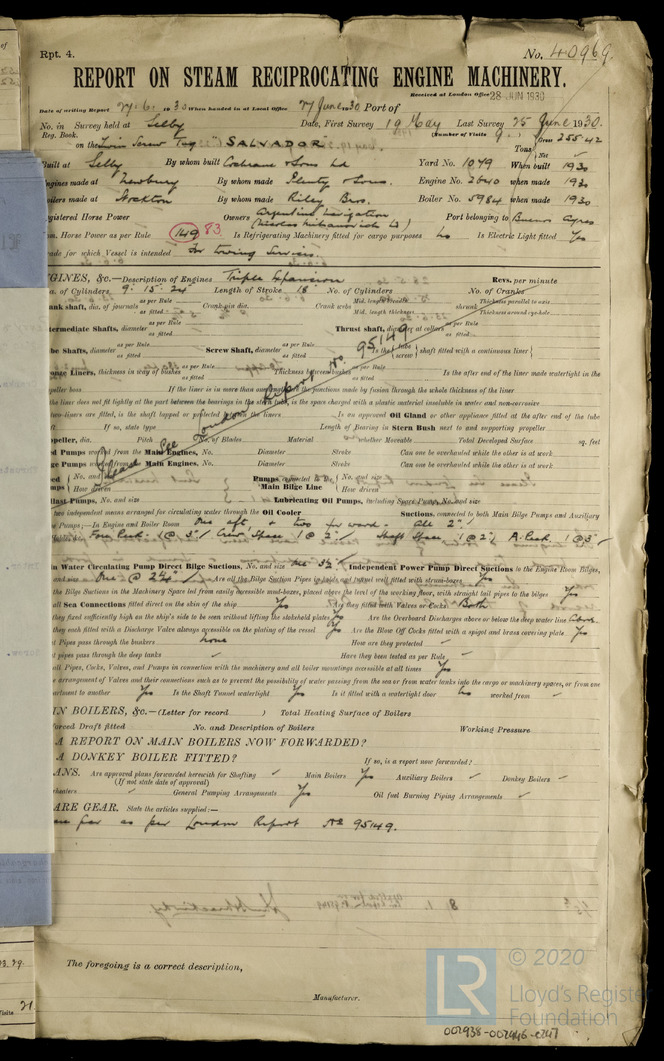 Rpt. 4.
No. 40969.
REPORT ON STEAM RECIPROCATING ENGINE MACHINERY.
Received at London Office 28 JUN 1930
Date of writing Report 27.6. 1930 When handed in at Local Office 27 June 1930 Port of
No. in Survey held at Selby Date, First Survey 19 May Last Survey 25 June 1930.
Reg. Book. (Number of Visits 9.)
on the Twin Screw Tug "SALVADOR" Tons Gross 255.42
Net
Built at Selby By whom built Cochrane & Sons Ld Yard No. 1079 When built 1930
Engines made at Newbury By whom made Plenty & Sons. Engine No. 2640 when made 1930
Boilers made at Stockton By whom made Riley Bros. Boiler No. 5984 when made 1930
Registered Horse Power Owners Argentine Navigation Port belonging to Buenos Ayres
(Nicolas Mihanovich Ld)
Nom. Horse Power as per Rule 149 83 Is Refrigerating Machinery fitted for cargo purposes No Is Electric Light fitted Yes
Trade for which Vessel is intended For towing Services.
ENGINES, &c.—Description of Engines Triple Expansion Revs. per minute
No. of Cylinders 9. 15. 24 Length of Stroke 18 No. of Cylinders No. of Cranks
Crank shaft, dia. of journals as per Rule as fitted Crank pin dia. Crank webs Mid. length breadth Mid. length thickness shrunk Thickness parallel to axis Thickness around eye-hole
Intermediate Shafts, diameter as per Rule as fitted Thrust shaft, diameter at collars as per Rule as fitted
Tube Shafts, diameter as per Rule as fitted Screw Shaft, diameter as per Rule as fitted Is the tube screw shaft fitted with a continuous liner
Bronze Liners, thickness in way of bushes as per Rule as fitted Thickness between bushes as per Rule as fitted Is the after end of the liner made watertight in the
propeller boss If the liner is in more than one length are the junctions made by fusion through the whole thickness of the liner
If the liner does not fit tightly at the part between the bearings in the stern tube, is the space charged with a plastic material insoluble in water and non-corrosive
If two liners are fitted, is the shaft lapped or protected between the liners Is an approved Oil Gland or other appliance fitted at the after end of the tube
If so, state type Length of Bearing in Stern Bush next to and supporting propeller
Propeller, dia. Pitch No. of Blades Material whether Moveable Total Developed Surface sq. feet
Feed Pumps worked from the Main Engines, No. Diameter Stroke Can one be overhauled while the other is at work
Bilge Pumps worked from the Main Engines, No. Diameter Stroke Can one be overhauled while the other is at work
Please see London Report No 95149
No. and size Pumps connected to the Main Bilge Line No. and size
How driven How driven
Ballast Pumps, No. and size Lubricating Oil Pumps, including Spare Pump, No. and size
two independent means arranged for circulating water through the Oil Cooler Suctions, connected to both Main Bilge Pumps and Auxiliary
Pumps;—In Engine and Boiler Room One aft & two forward. All 2"
Fore Peak. 1 @ 3" Crew Space 1 @ 2" Shaft Space. 1 @ 2" A. Peak. 1 @ 3"
Main Water Circulating Pump Direct Bilge Suctions, No. and size One 3½ Independent Power Pump Direct Suctions to the Engine Room Bilges,
and size One @ 2¼" Are all the Bilge Suction Pipes in holds and tunnel well fitted with strum-boxes Yes
the Bilge Suctions in the Machinery Spaces led from easily accessible mud-boxes, placed above the level of the working floor, with straight tail pipes to the bilges Yes
all Sea Connections fitted direct on the skin of the ship Yes Are they fitted with Valves or Cocks Both
they fixed sufficiently high on the ship's side to be seen without lifting the stokehold plates Yes Are the Overboard Discharges above or below the deep water line Above
they each fitted with a Discharge Valve always accessible on the plating of the vessel Yes Are the Blow Off Cocks fitted with a spigot and brass covering plate Yes
Pipes pass through the bunkers None How are they protected
pipes pass through the deep tanks Have they been tested as per Rule
all Pipes, Cocks, Valves, and Pumps in connection with the machinery and all boiler mountings accessible at all times Yes
arrangement of Valves and their connections such as to prevent the possibility of water passing from the sea or from water tanks into the cargo or machinery spaces, or from one
compartment to another Yes Is the Shaft Tunnel watertight Yes Is it fitted with a watertight door No worked from
MAIN BOILERS, &c.—(Letter for record ) Total Heating Surface of Boilers
Forced Draft fitted No. and Description of Boilers Working Pressure
A REPORT ON MAIN BOILERS NOW FORWARDED?
A DONKEY BOILER FITTED? If so, is a report now forwarded?
PLANS. Are approved plans forwarded herewith for Shafting Main Boilers Yes Auxiliary Boilers Donkey Boilers
(If not state date of approval)
General Pumping Arrangements Yes Oil fuel Burning Piping Arrangements
SPARE GEAR. State the articles supplied:—
gear as per London Report No 95149.
The foregoing is a correct description,
Manufacturer.
© 2020
LR
Lloyd's Register
Foundation
002938-002946-0247